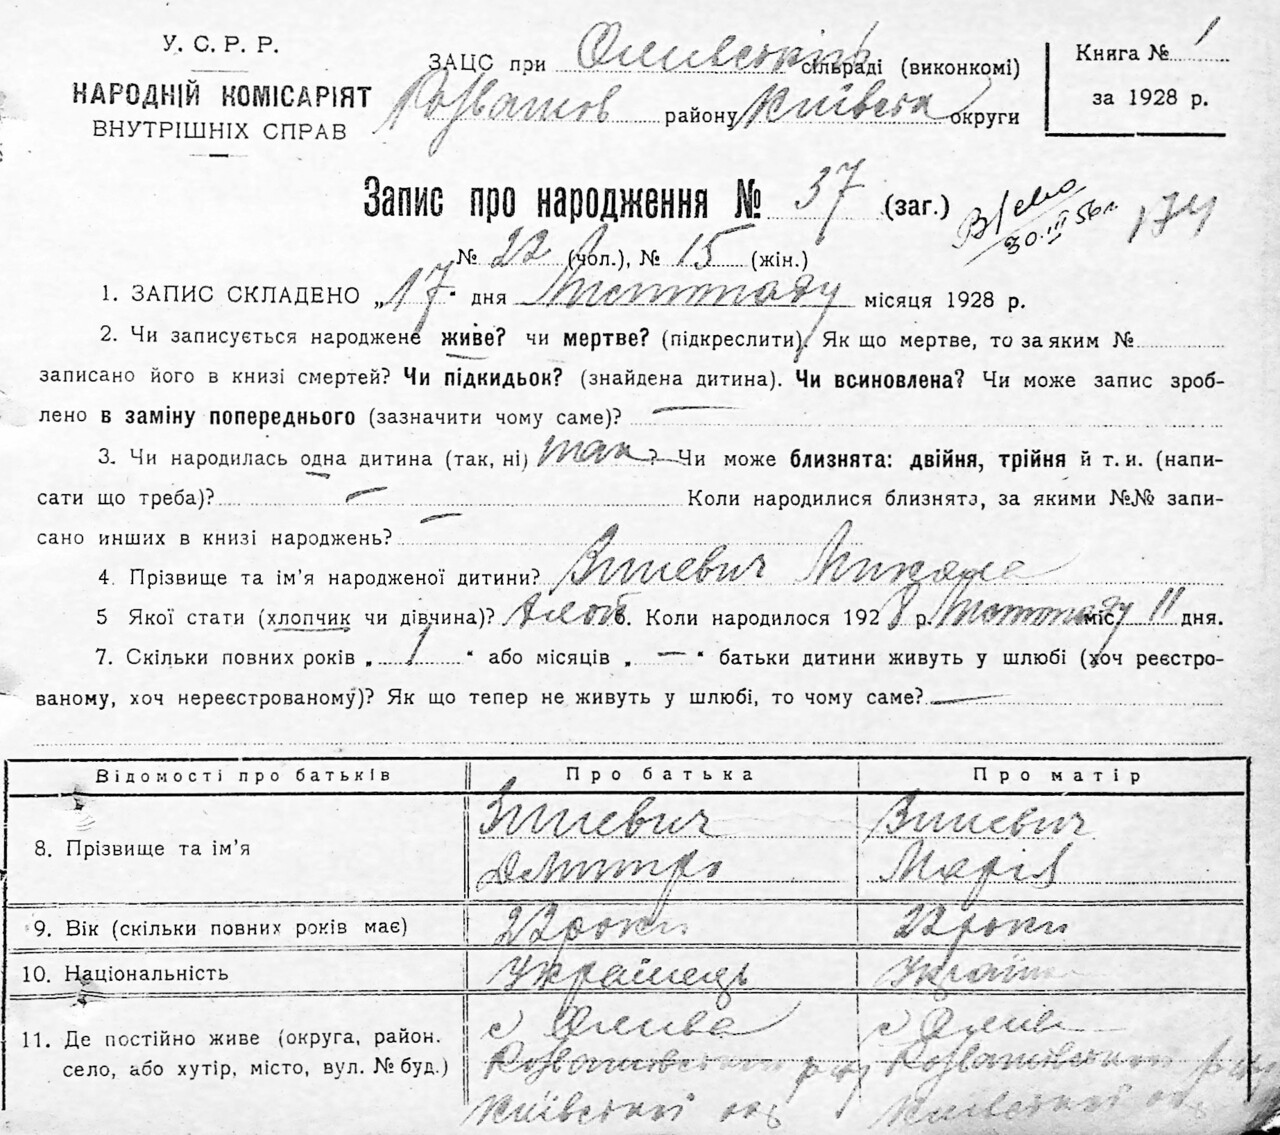 У. С. Р. Р.
НАРОДНІЙ КОМІСАРІЯТ
ВНУТРІШНІХ СПРАВ
ЗАЦС при сільраді (виконкомі)
Розважів району Київськ округи
Книга № 1
за 1928 р.
Запис про народження № 37 (заг.) 30.III 56 г. 174
№ 22 (чол.), № 15 (жін.)
1. ЗАПИС СКЛАДЕНО „17“ дня Листопаду місяця 1928 р.
2. Чи записується народжене живе? чи мертве? (підкреслити). Як що мертве, то за яким №
записано його в книзі смертей? Чи підкидьок? (знайдена дитина). Чи всиновлена? Чи може запис зроб-
лено в заміну попереднього (зазначити чому саме)? —
3. Чи народилась одна дитина (так, ні) так? Чи може близнята: двійня, трійня й т. и. (напи-
сати що треба)? — Коли народилися близнята, за якими №№ запи-
сано инших в книзі народжень? —
4. Прізвище та ім’я народженої дитини? Зіневич Микола
5 Якої стати (хлопчик чи дівчина)? Хлоп 6. Коли народилося 1928 р. Листопаду міс. 11 дня.
7. Скільки повних років „1“ або місяців „—“ батьки дитини живуть у шлюбі (хоч реєстро-
ваному, хоч нереєстрованому)? Як що тепер не живуть у шлюбі, то чому саме? —
Відомості про батьків Про батька Про матір
8. Прізвище та ім’я Зіневич Дмитро Зіневич Марія
9. Вік (скільки повних років має) 22 роки 22 роки
10. Національність Українець Україн
11. Де постійно живе (округа, район. с Олива с Олив
село, або хутір, місто, вул. № буд.) Розважівськ р-ну Розважівськ р-ну
Київської ок Київської ок